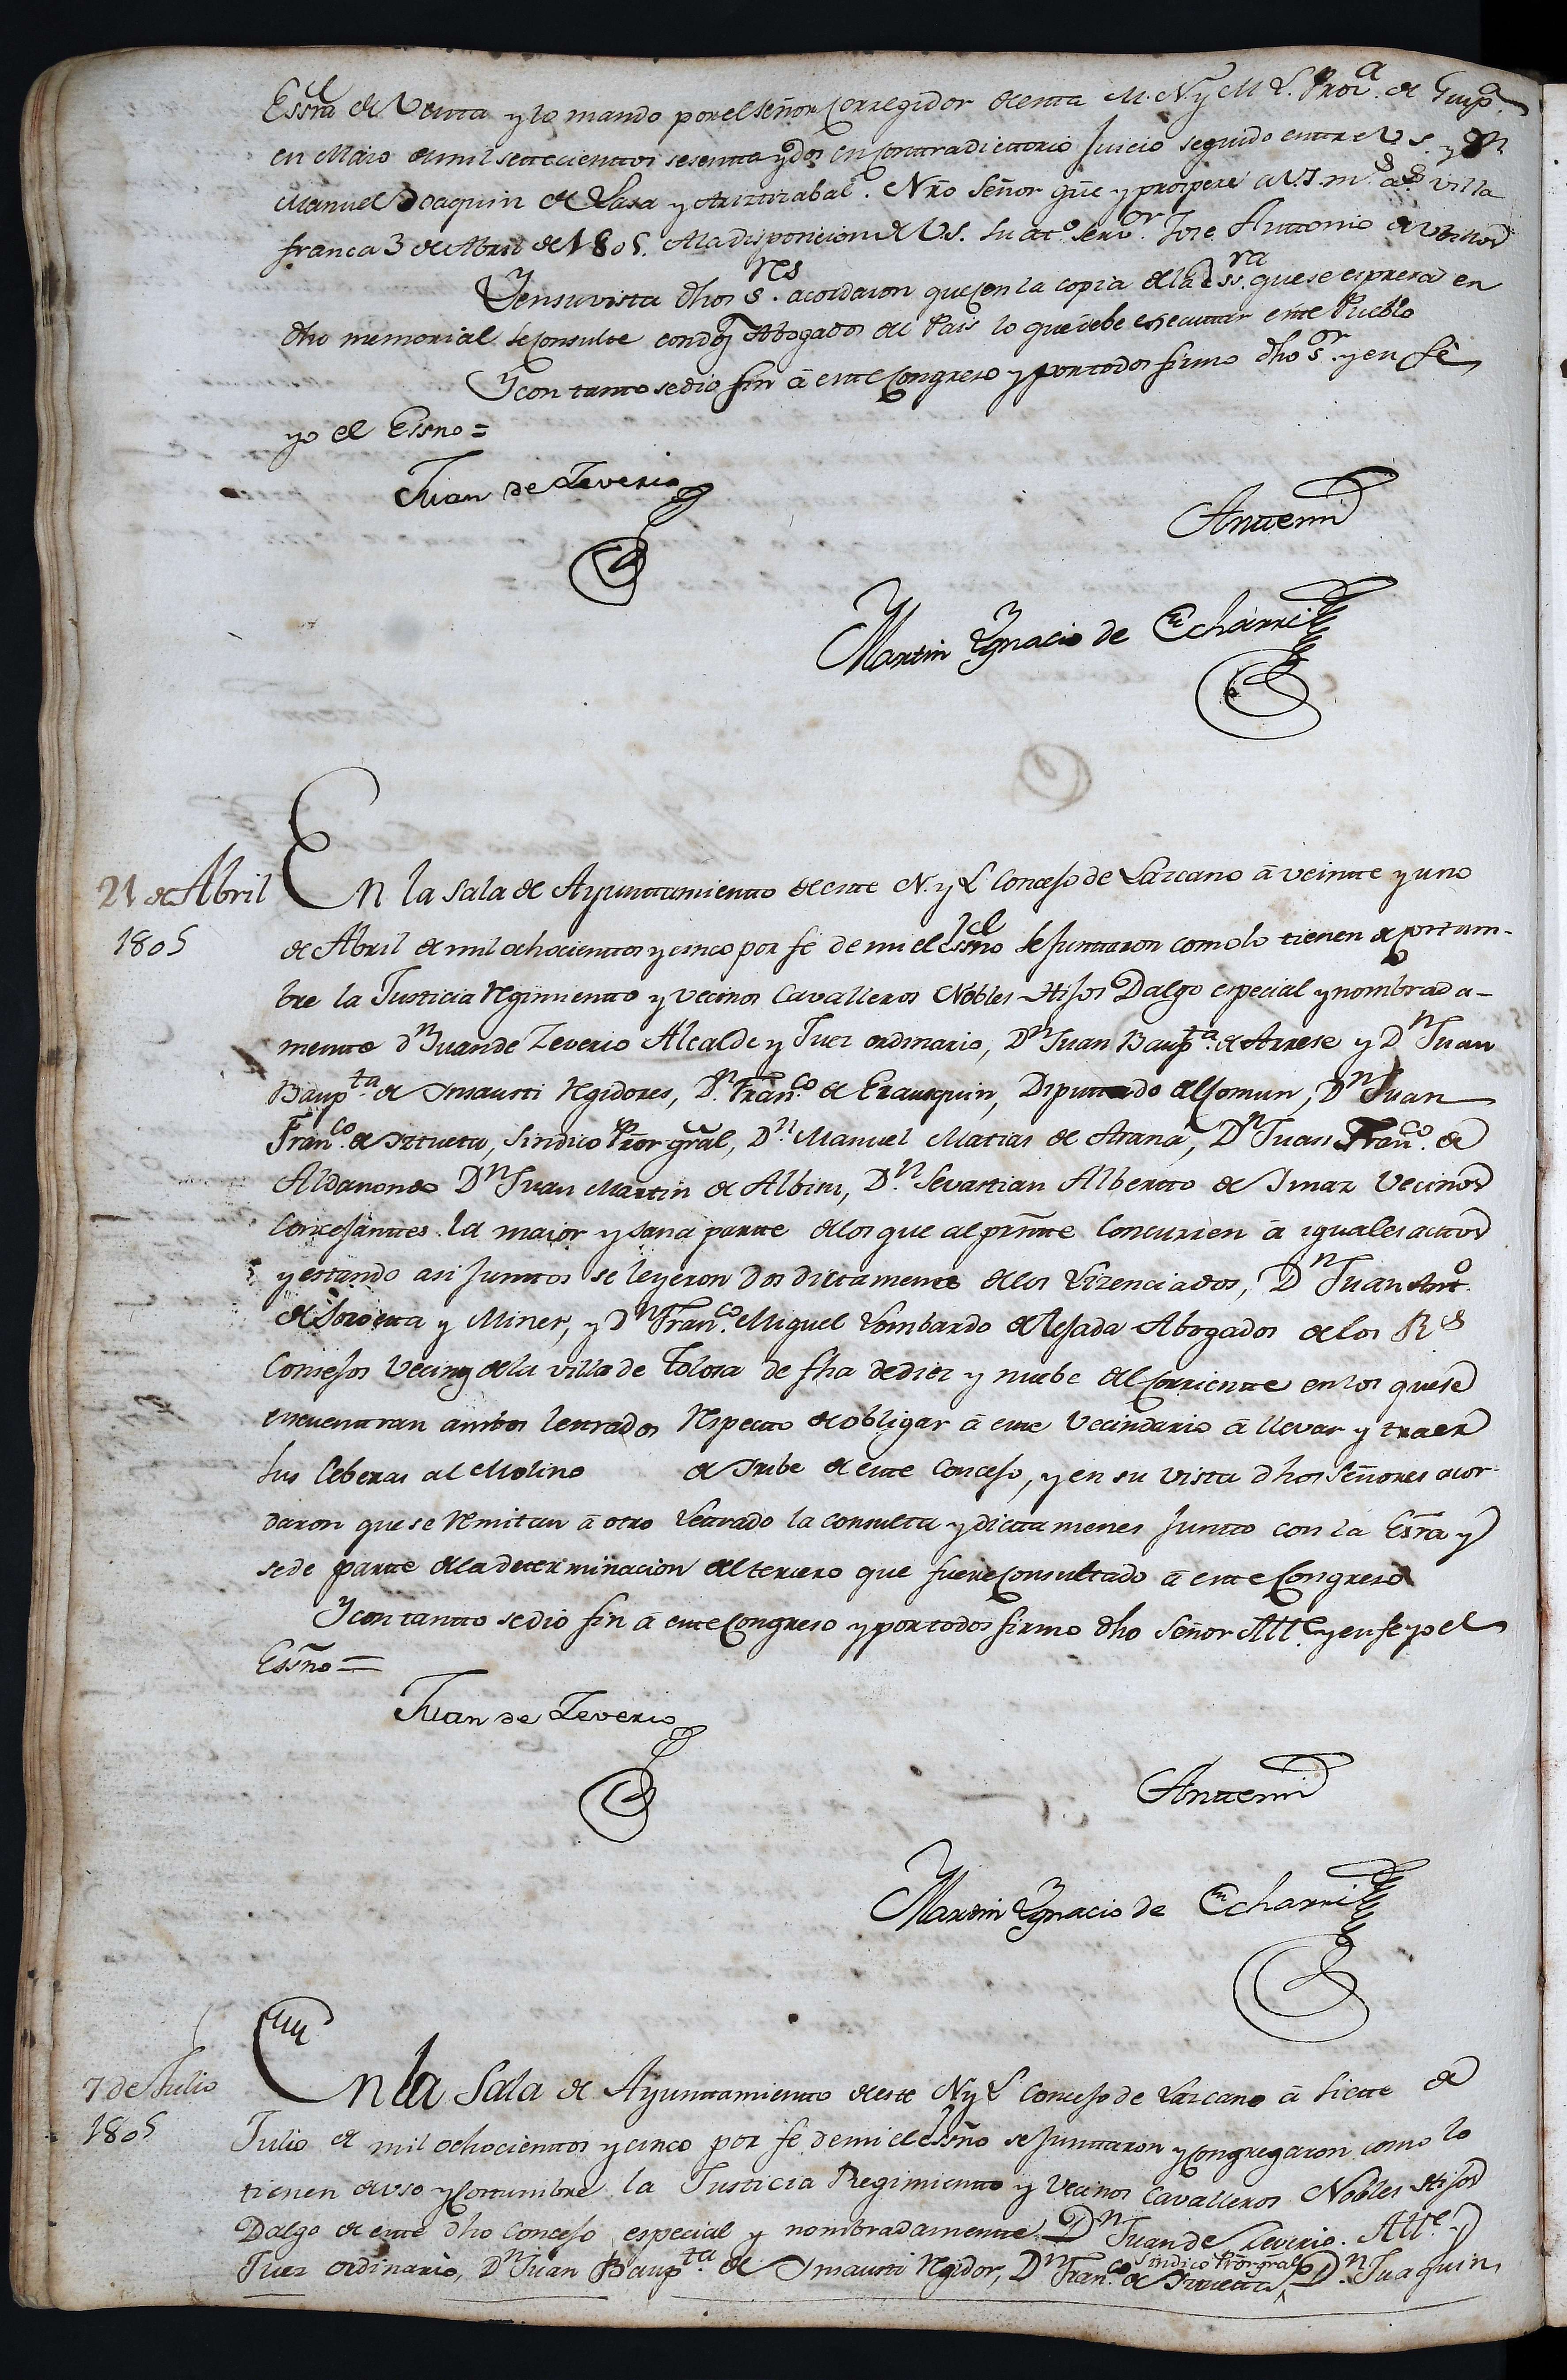 Essra de Venta y lo mando por el señor Corregidor de esta M. N. y M. L. Prova. de Guipa.
en Maio de mil settecienttos sesentta y dos en Contradicttorio Juicio seguido enttre V.S. y Dn
Manuel Joaquin de Lasa y Aristizabal. Nro Señor gue y prospere a V.S. ms. as. villa
franca 3 de Abril de 1805. A la disposicion de V.S. su att.o serv.or Jose Anttonio de
Y en su vista dhos S.res acordaron que con la copia de la Ess.ra que se espresa en
dho memorial se consulte con dos Abogados del Pais lo que debe egecuttar este Pueblo
Y con tanto se dio fin â este Congreso y por todos firmo dho S.or y en fè
yo el Essno =
Juan de Zeverio
Antemi
Martin Ygnacio de Echarri
21 de Abril
1805
En la Sala de Ayunttamientto de este N. y L. Concejo de Lazcano â veintte y uno
de Abril de mil ochocienttos y cinco por fé de mi el Essno se Junttaron como lo tienen de costum-
bre la Justicia Regimientto y vecinos Cavalleros Nobles Hijos Dalgo especial y nombrada-
mentte dn Juan de Zeverio Alcalde y Juez ordinario, Dn Juan Baupta. de Arrese y Dn Juan
Baupta. de Ynsausti Regidores, Dn. Franco. de Erausquin, Diputtado del Comun, Dn Juan
Franco. de Yztueta, Sindico Pror gral, Dn. Manuel Matias de Arana, Dn Juan Franco. de
Aldanondo Dn Juan Martin de Albisu, Dn. Sevastian Albertto de Ymaz Vecinos
Concejanttes la maior y sana partte de los que al prnte Concurren â iguales acttos
y estando asi Junttos se leyeron dos dictamenes de los Lizenciados, Dn Juan Antto.
de Soroeta y Miner, y Dn Franco. Miguel Lombardo de Tejada Abogados de los Rs
Consejos Vecinos de la villa de Tolosa de fha de diez y nuebe del Corriente en los que se
encuentran ambos letrados respecto de obligar â este Vecindario â llevar y traer
sus Ceberas al Molino de Yribe de este Concejo, y en su vista dhos Señores acor-
daron que se remitan â otro Letrado la consulta y dictamenes Juntto con la Esra y
se de parte de la determinacion del tercero que fuere Consultado â este Congreso
Y con tantto se dio fin â este Congreso y por todos firmo dho Señor Alle. y en fe yo el
Essno =
Juan de Zeverio
Antemi
Martin Ygnacio de Echarri
7 de Julio
1805
En la Sala de Ayunttamientto de este N y L Concejo de Lazcano â siette de
Julio de mil ochocienttos y cinco por fe de mi el Essño se Junttaron y Congregaron como lo
tienen de uso y Costumbre la Justicia Regimientto y Vecinos Cavalleros Nobles Hijos
Dalgo de este dho Concejo especial y nombradamente Dn Juan de Zeverio Alle. y
Juez ordinario, Dn Juan Baupta. de Ynsausti Regidor, Dn Franco. de Yztueta Sindico Pror gral, Dn. Juaquin